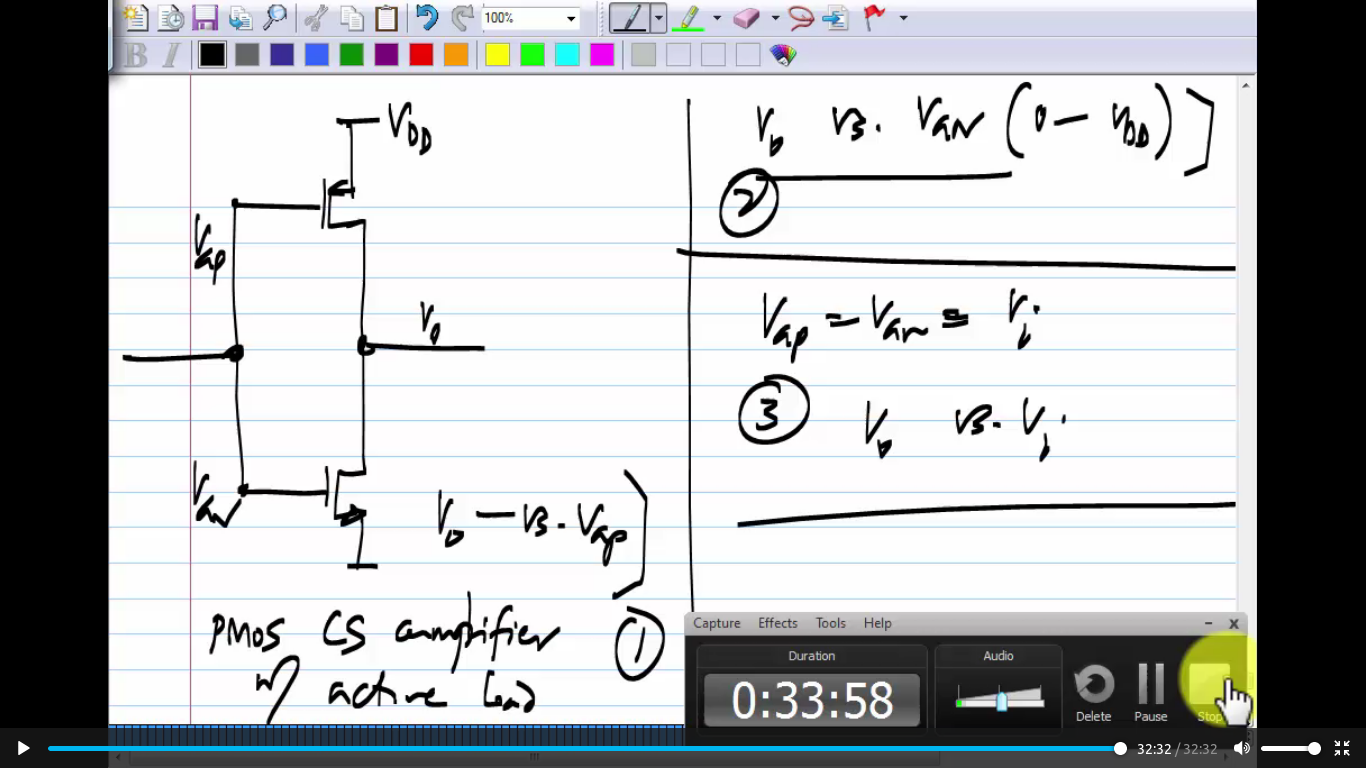 100%
B I
V_DD
V_GP
V_o
V_GN
V_o — vs. V_GP
PMOS CS amplifier ①
w/ active load
V_o vs. V_GN (0 — V_DD)
②
V_GP = V_GN = V_i
③ V_o vs. V_i
Capture Effects Tools Help
Duration Audio
0:33:58
Delete Pause Stop
32:32 / 32:32